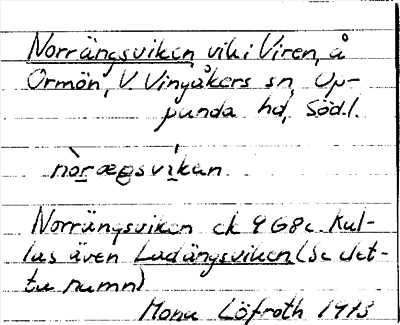 Norrängsviken, vik i Viren, å
Ormön, V. Vingåkers sn, Op-
punda hd, Södl.
nòrængsvíkan
Norrängsviken ek 9G8c. Kal-
las även Ladängsviken (Se det-
ta namn)
Mona Löfroth 1973